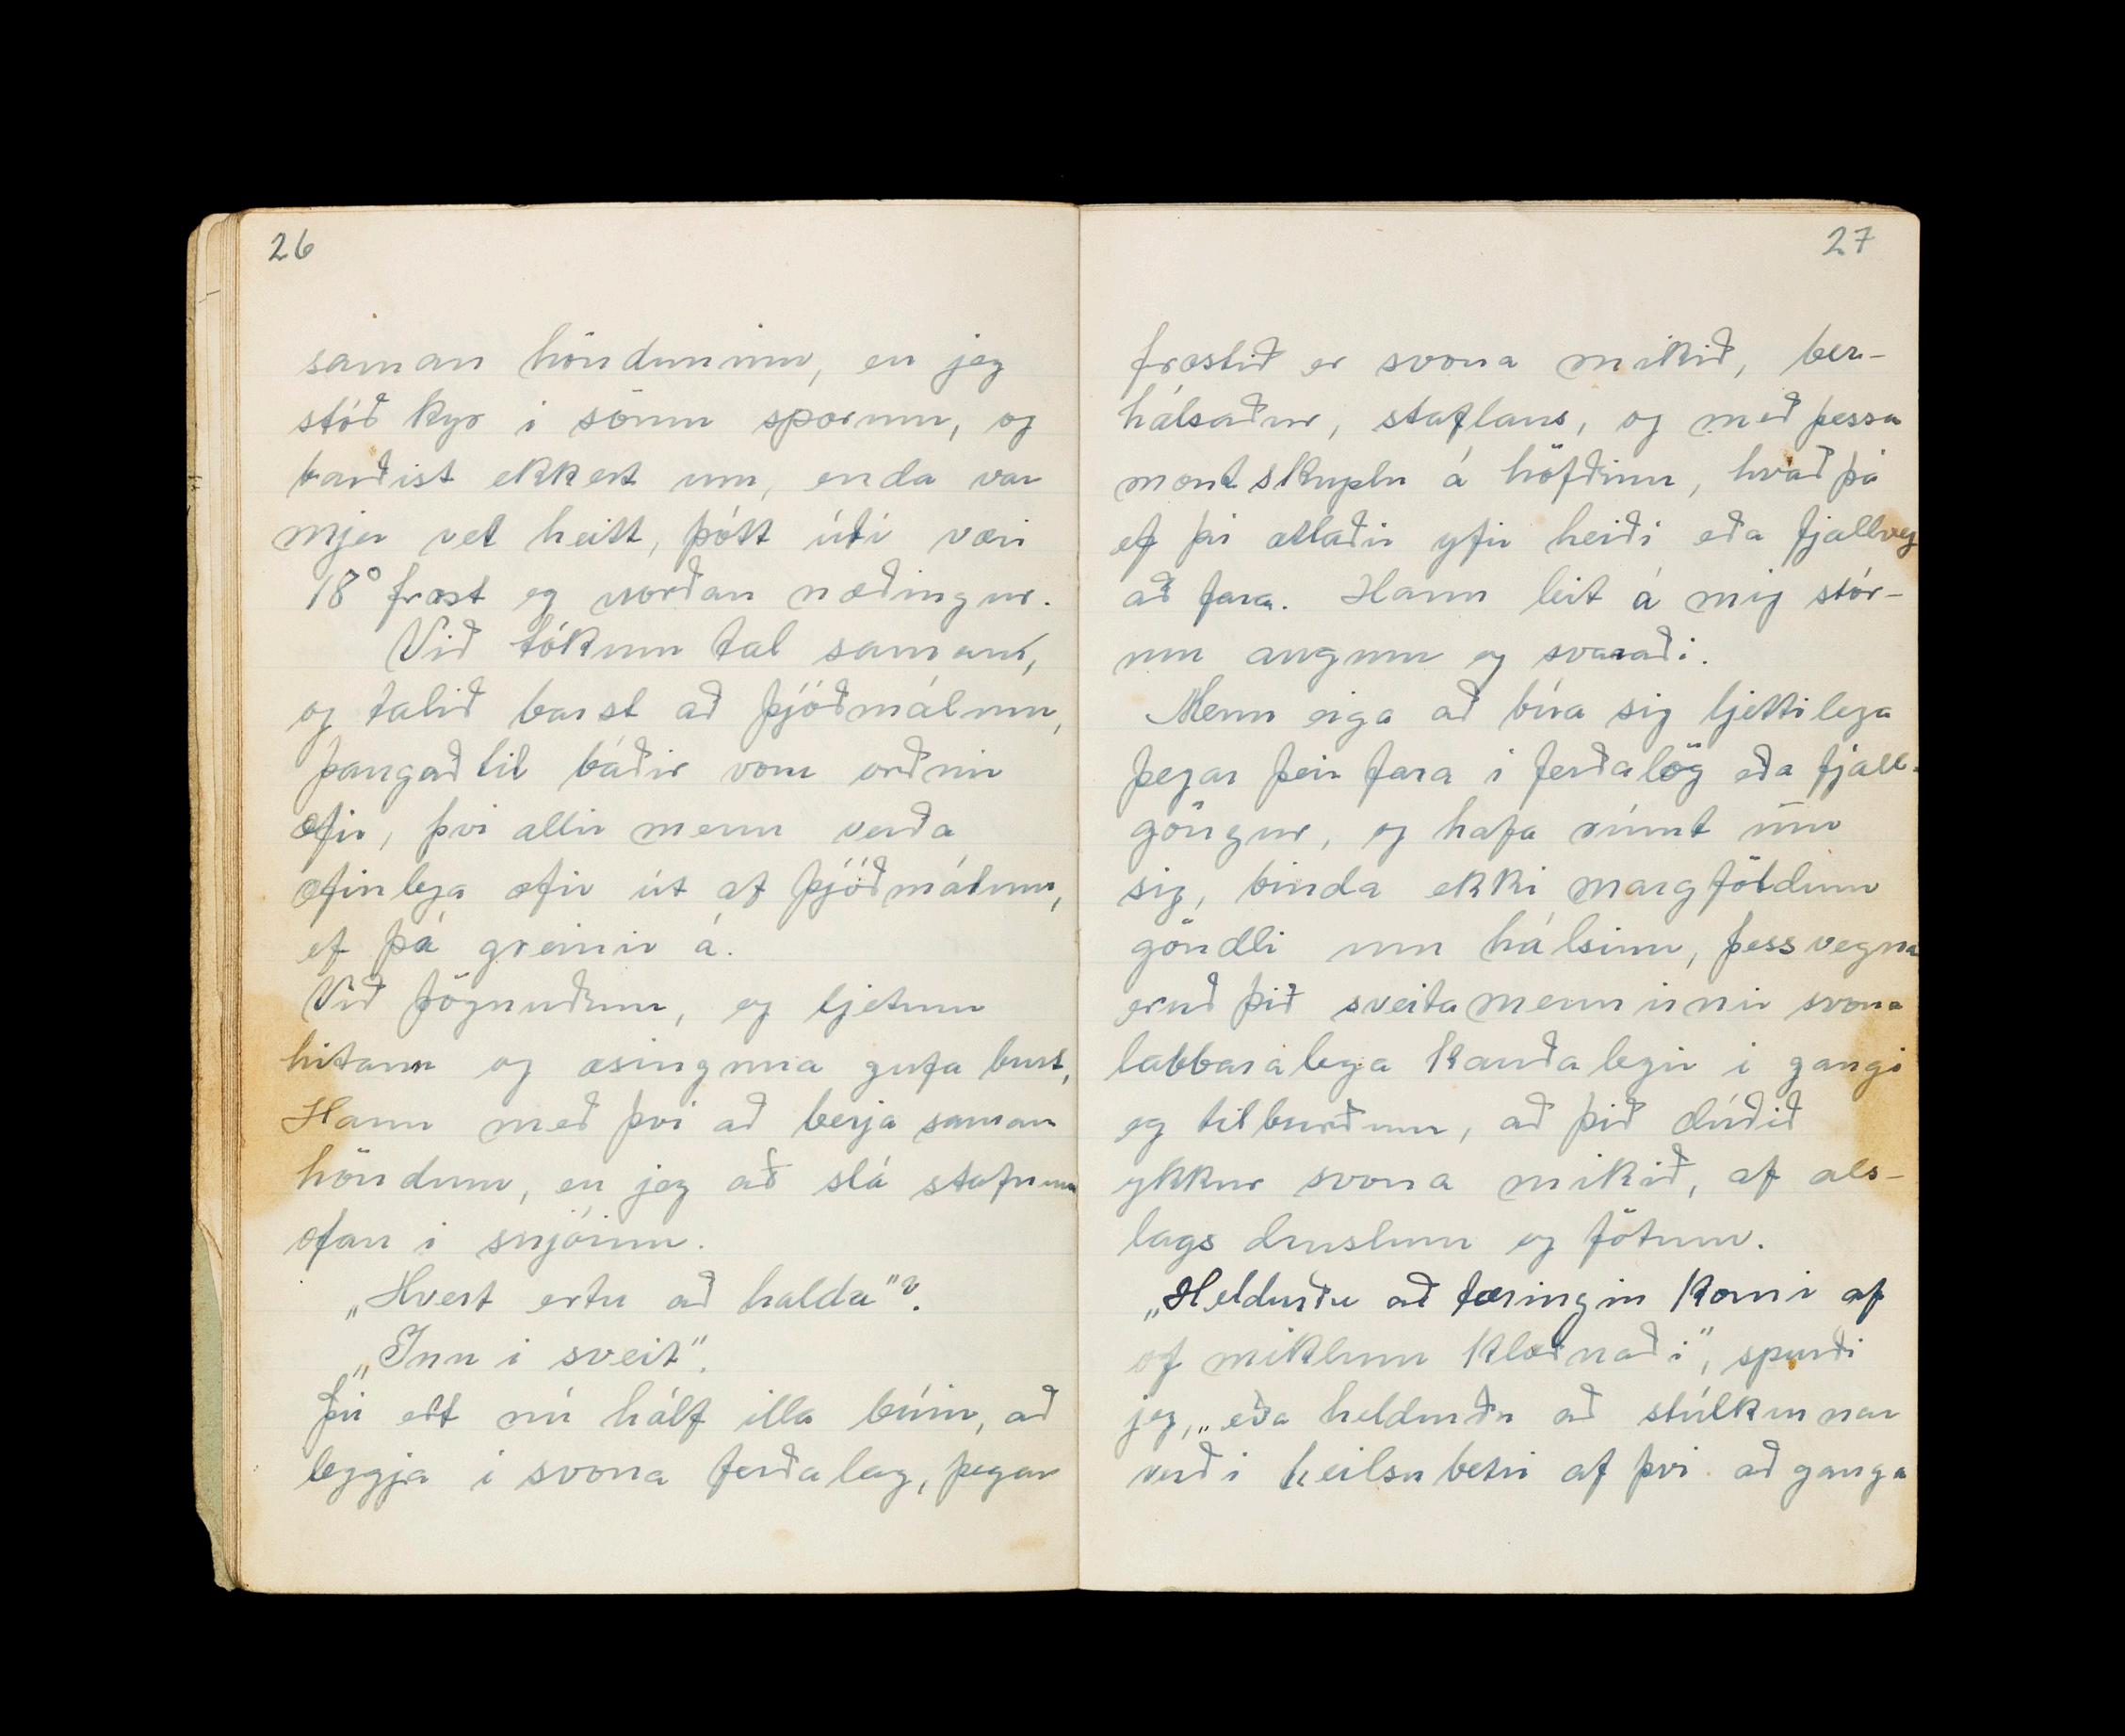 26
saman höndunum, en jeg
stóð kyr i sömu sporum, og
barðist ekkert um, enda var
mjer vel heitt, þótt úti væri
18° frost og norðan næðingur.
Við tókum tal saman,
og talið barst að þjóðmálum,
þangað til báðir voru orðnir
æfir, því allir menn verða
æfinlega æfir út af þjóðmálum,
ef þá greinir á.
Við þögnuðum, og ljetum
hitann og æsinguna gufa burt,
Hann með því að berja saman
höndum, en jeg að slá stafnum
ofan i snjóinn.
„Hvert ertu að halda"?.
„Inn i sveit".
Þú ert nú hálf illa búin, að
leggja i svona ferðalag, þegar
27
frostið er svona mikið, ber-
hálsaður, staflaus, og með þessa
montskuplu á höfðinu, hvað þá
ef þú ætlaðir yfir heiði eða fjallveg
að fara. Hann leit á mig stór-
um augum og svaraði.
Menn eiga að búa sig ljettilega
þegar þeir fara i ferðalög eða fjall-
göngur, og hafa rúmt um
sig, binda ekki margföldum
göndli um hálsinn, þessvegna
eruð þið sveitamennirnir svona
labbaralega kauðalegir i gangi
og tilburðum, að þið dúðið
ykkur svona mikið, af als-
lags druslum og fötum.
„Heldurðu að tæringin komi af
of miklum klæðnaði", spurði
jeg, „eða heldurðu að stúlkurnar
verði heilsubetri af því að ganga